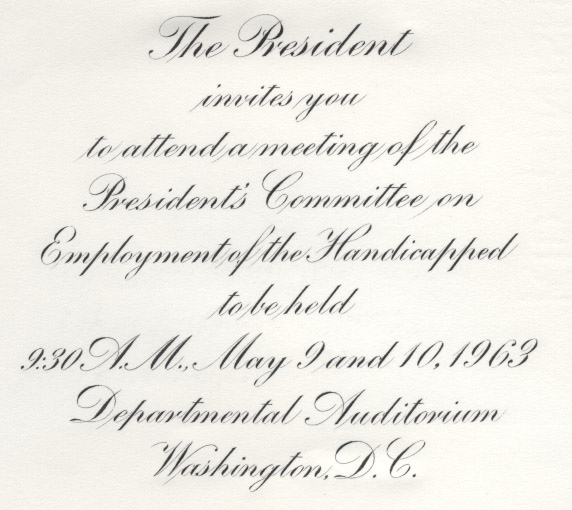 The President
invites you
to attend a meeting of the
President's Committee on
Employment of the Handicapped
to be held
9:30 A.M., May 9 and 10, 1963
Departmental Auditorium
Washington, D.C.